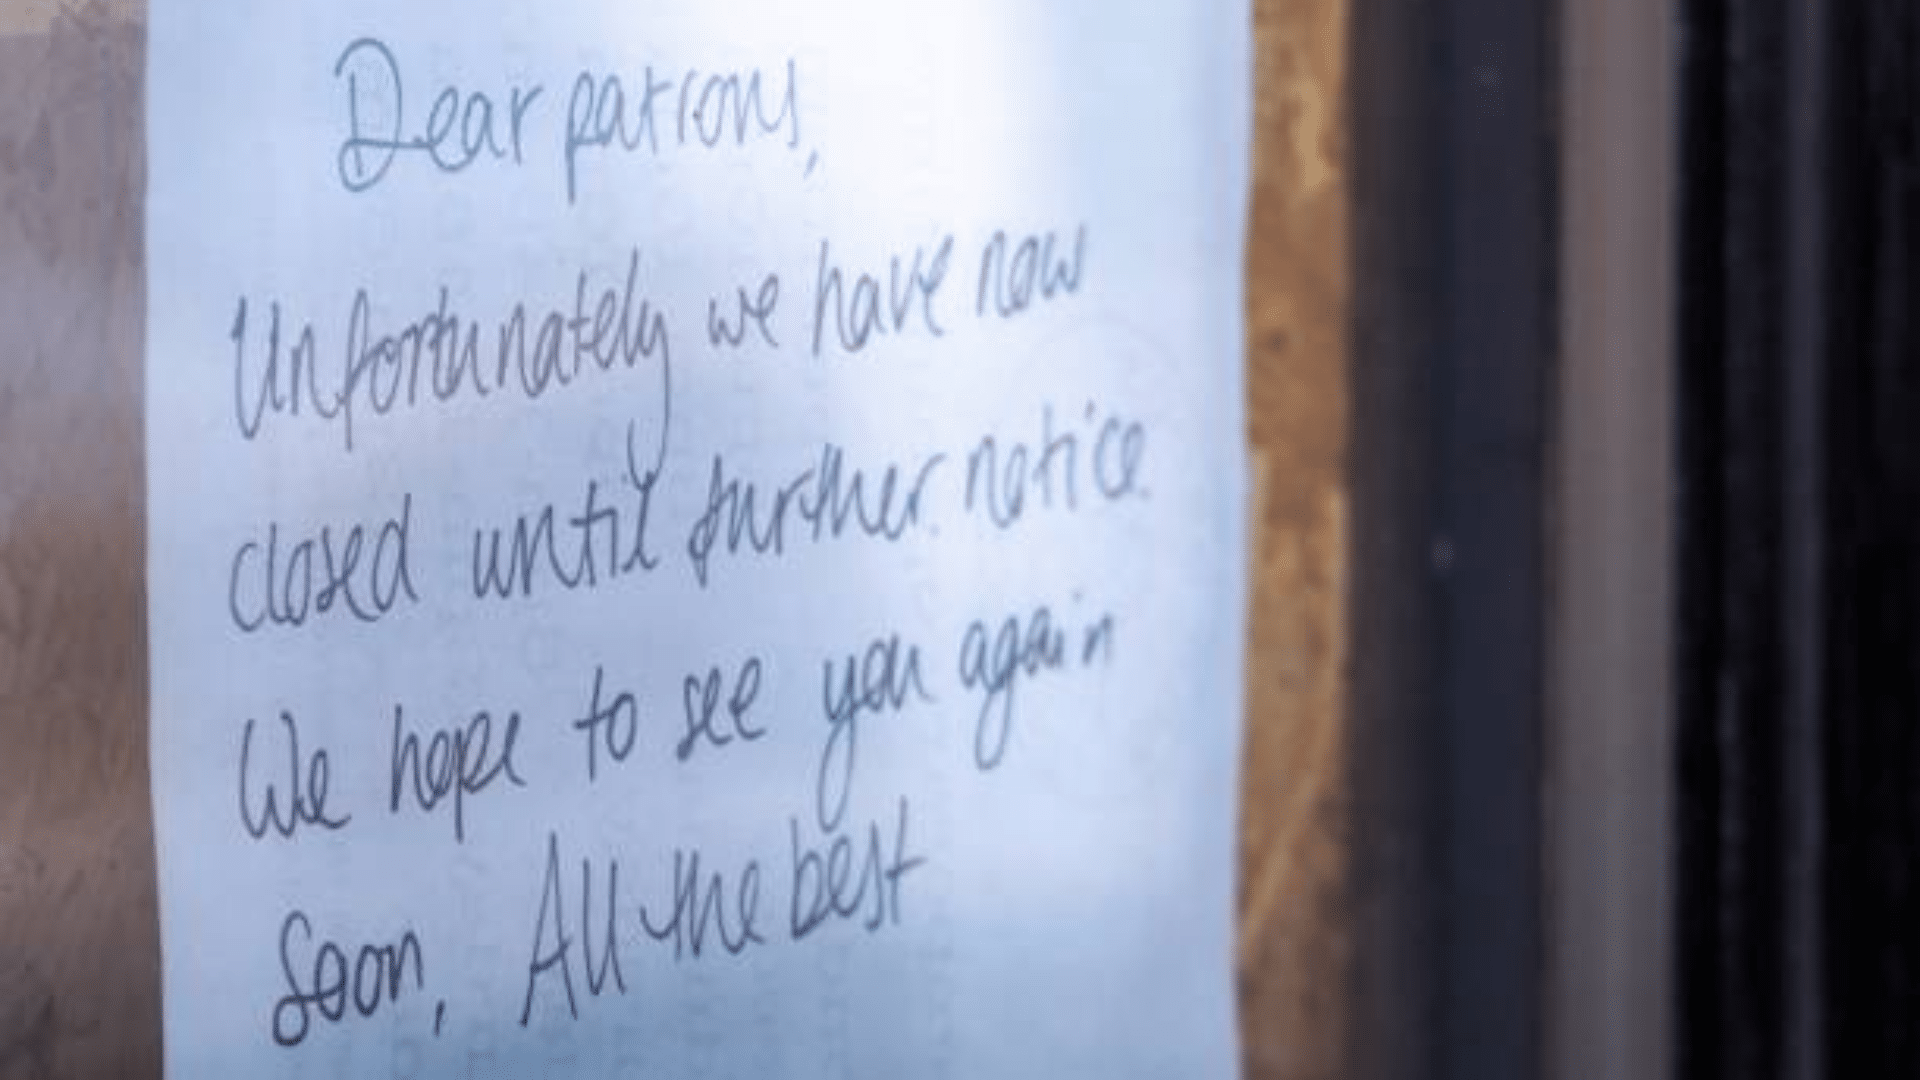 Dear patrons,
Unfortunately we have now
closed until further notice.
We hope to see you again
soon, All the best